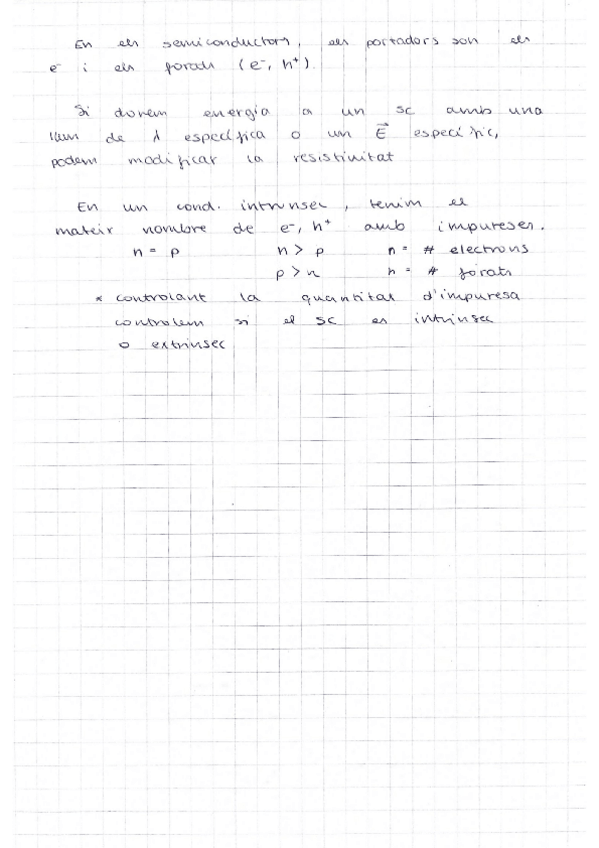 En els semiconductors, els portadors son els
e⁻ i els forats (e⁻, h⁺).
Si donem energia a un sc amb una
llum de λ específica o un E⃗ específic,
podem modificar la resistivitat
En un cond. intrínsec, tenim el
mateix nombre de e⁻, h⁺ amb impureses.
n = p n > p n = # electrons
p > n h = # forats
* controlant la quantitat d'impuresa
controlem si el sc es intrínsec
o extrínsec